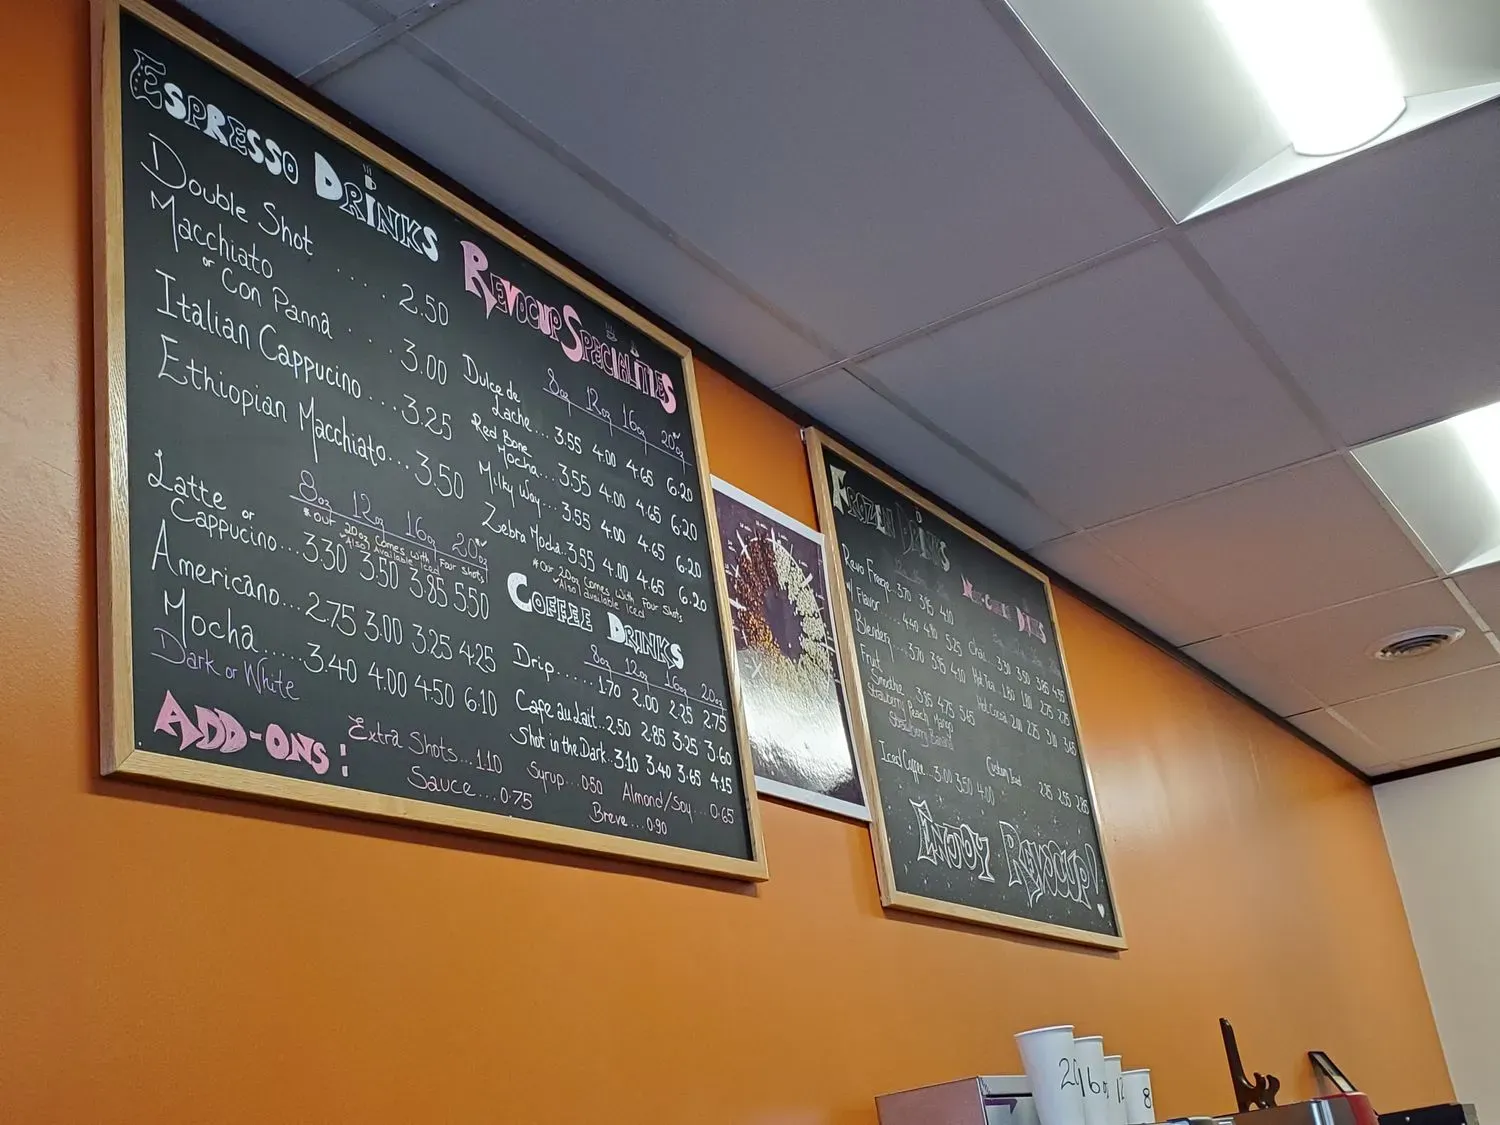 ESPRESSO DRINKS
Double Shot .... 2.50
Macchiato
or Con Panna . . . 3.00
Italian Cappucino .... 3.25
Ethiopian Macchiato... 3.50
8oz 12oz 16oz 20oz
*Our 20oz comes with four shots
Also Available Iced
Latte or
Cappucino... 3.30 3.50 3.85 5.50
Americano... 2.75 3.00 3.25 4.25
Mocha..... 3.40 4.00 4.50 6.10
Dark or White
REVOCUP SPECIALTIES
8oz 12oz 16oz 20oz
Dulce de
Lache... 3.55 4.00 4.65 6.20
Red Bone
Mocha... 3.55 4.00 4.65 6.20
Milky Way... 3.55 4.00 4.65 6.20
Zebra Mocha.. 3.55 4.00 4.65 6.20
*Our 20oz comes with four shots
Also available iced
COFFEE DRINKS
8oz 12oz 16oz 20oz
Drip....... 1.70 2.00 2.25 2.75
Cafe au Lait.. 2.50 2.85 3.25 3.60
Shot in the Dark.. 3.10 3.40 3.65 4.15
ADD-ONS!
Extra Shots... 1.10
Sauce ... 0.75
Syrup... 0.50
Almond/Soy... 0.65
Breve... 0.90
FROZEN DRINKS
Revo Freeze 3.70 3.95 4.10
w/ Flavor 4.40 4.90 5.25
Blendery 3.70 3.95 4.10
Fruit
Smoothie 3.95 4.75 5.65
Strawberry Peach Mango
Strawberry Banana
Iced Coffee.. 3.00 3.50 4.00
DRINKS
Chai... 3.30 3.50 3.85 4.35
Hot Tea
Hot Cocoa
Custom Iced 2.25 2.55 2.85
ENJOY REVOCUP!
20
16o
12
8